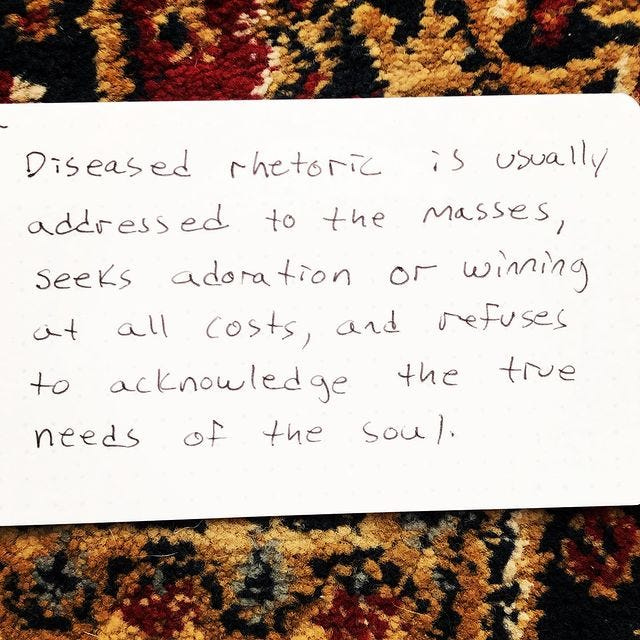 Diseased rhetoric is usually
addressed to the masses,
seeks adoration or winning
at all costs, and refuses
to acknowledge the true
needs of the soul.